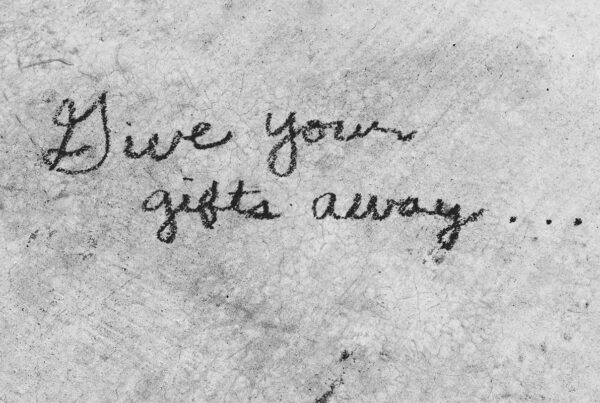 Give your
gifts away...